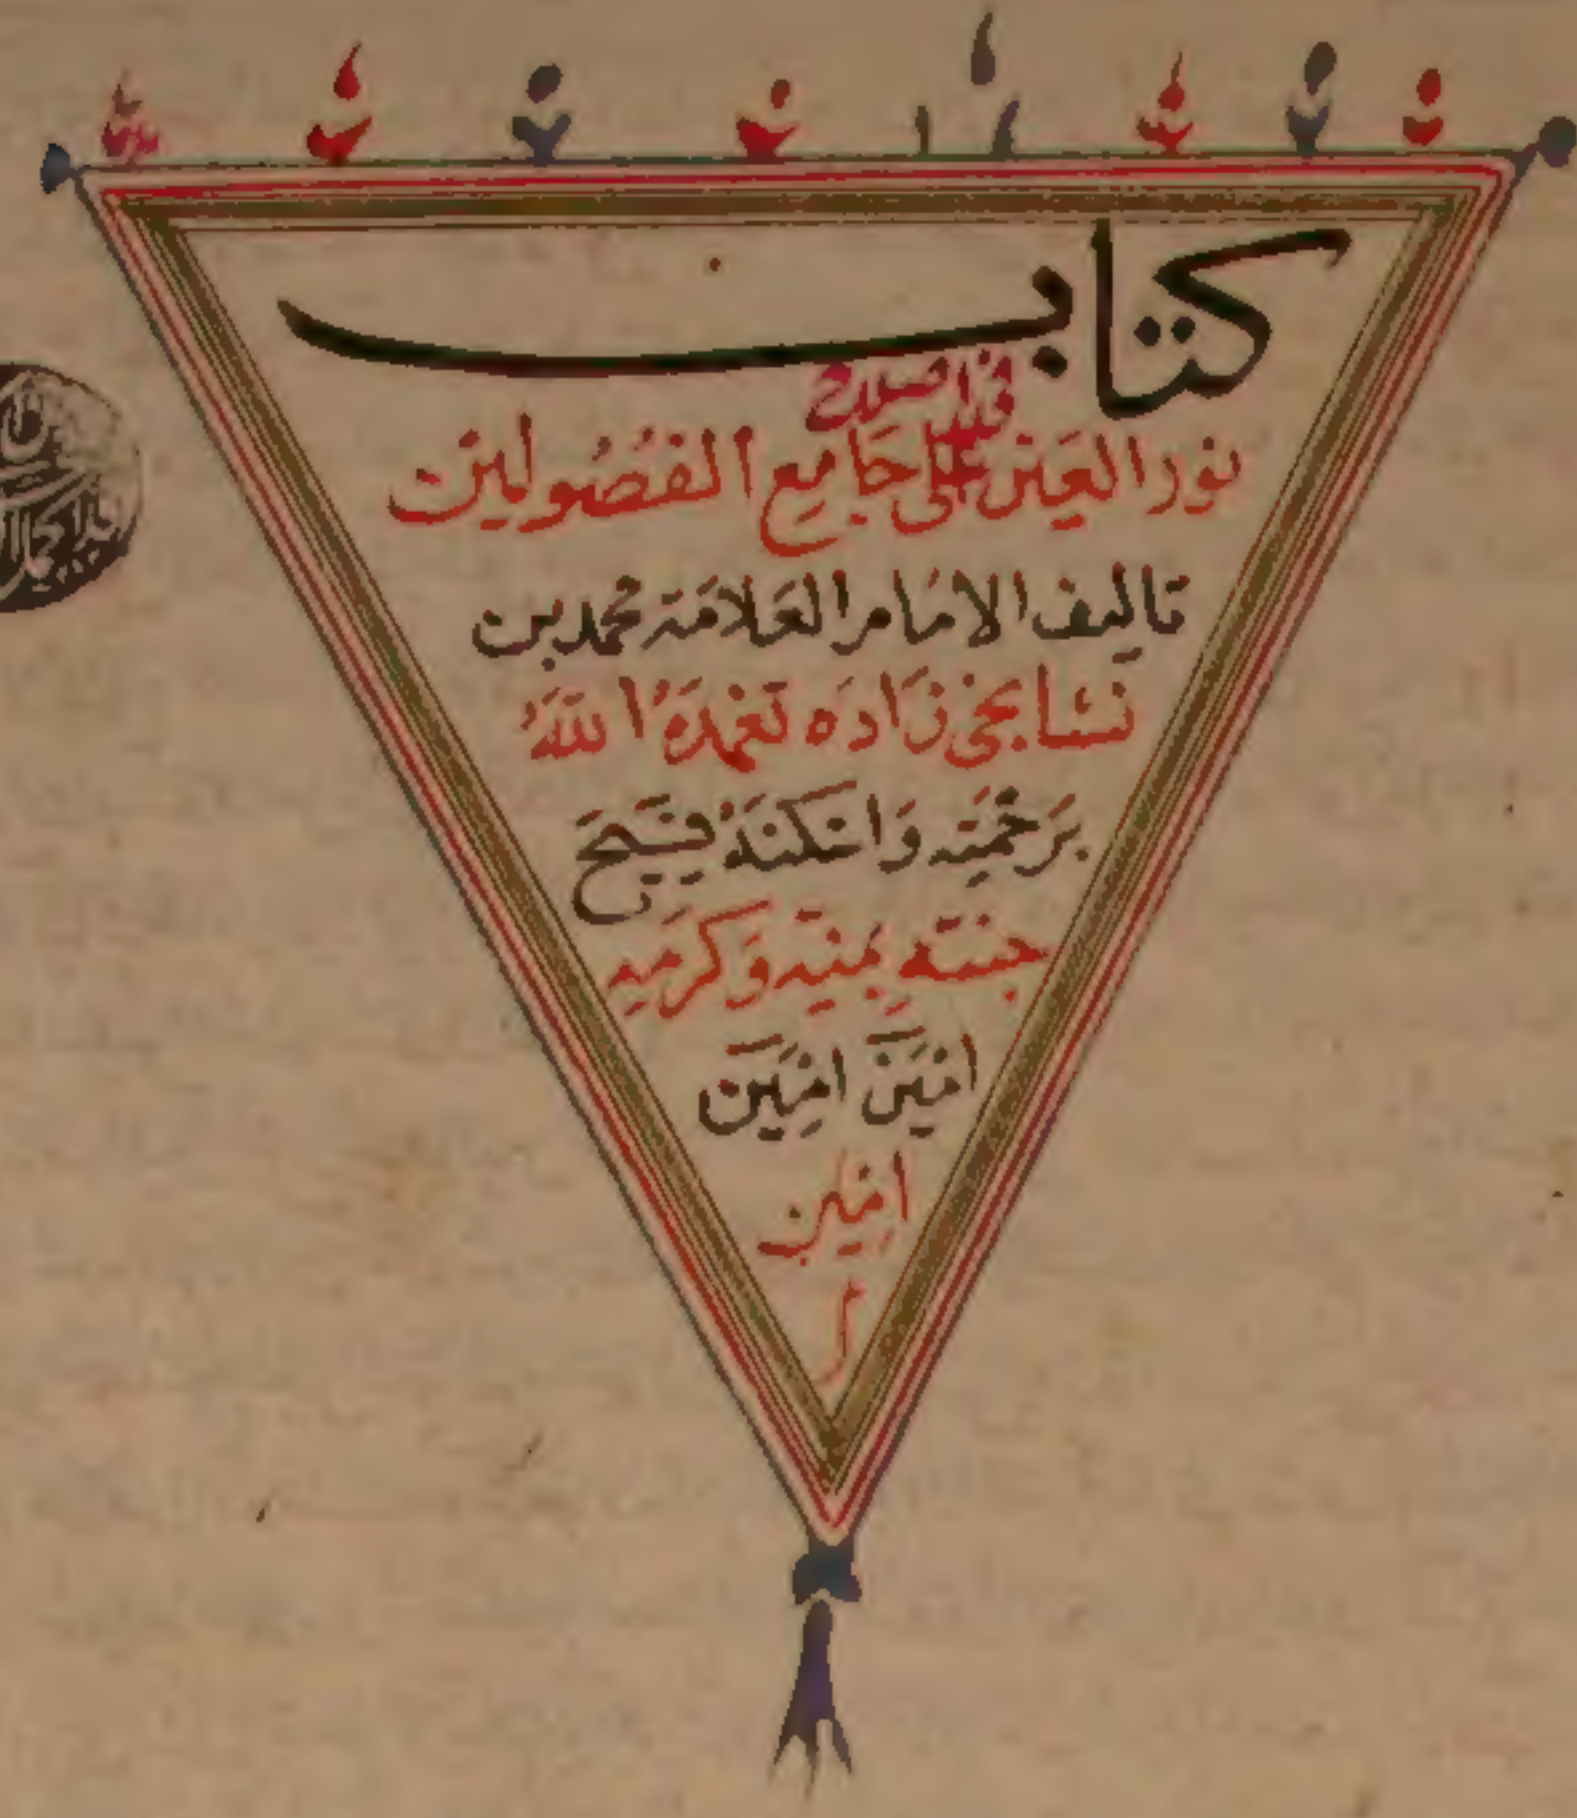 كتاب
في اصلاح
نور العين على جَامِع الفصُولين
تاليف الامَام العَلامَة محمد بن
نشابخى زَادَه تغمدَهُ اللَّهُ
برَحمَتِه وَاسْكنَهُ فِسَيح
جنته بمَنِّه وَكرَمِه
امِيَن امِيَن
امِين
م